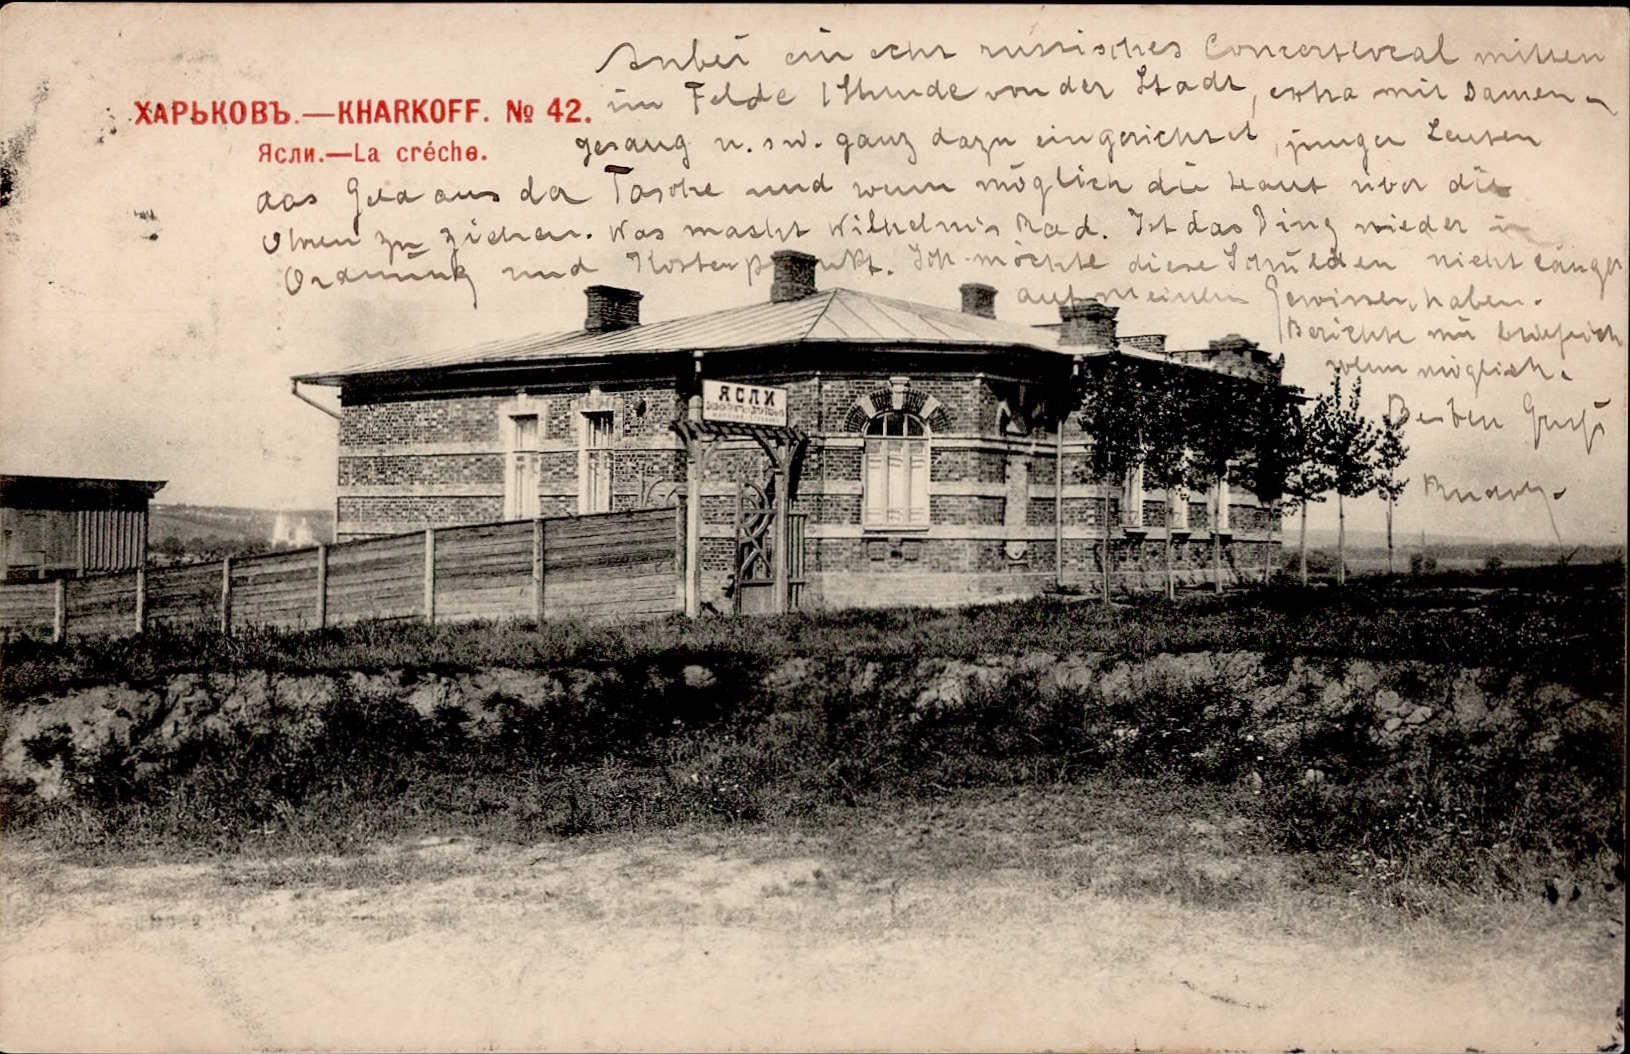 Anbei ein echt russisches Concertlocal mitten
ХАРЬКОВЪ.—KHARKOFF. № 42.
im Felde 1 Stunde von der Stadt, extra mit Damen-
Ясли.—La crèche.
gesang u.s.w. ganz dazu eingerichtet, junger Leuten
das Geld aus der Tasche und wenn möglich die Haut über die
Ohren zu ziehen. Was macht Wilhelm's Rad. Ist das Ding wieder in
Ordnung und Kostenpunkt. Ich möchte diese Schulden nicht länger
auf meinem Gewissen haben.
Berichte mir
wenn möglich.
Besten Gruß
ЯСЛИ